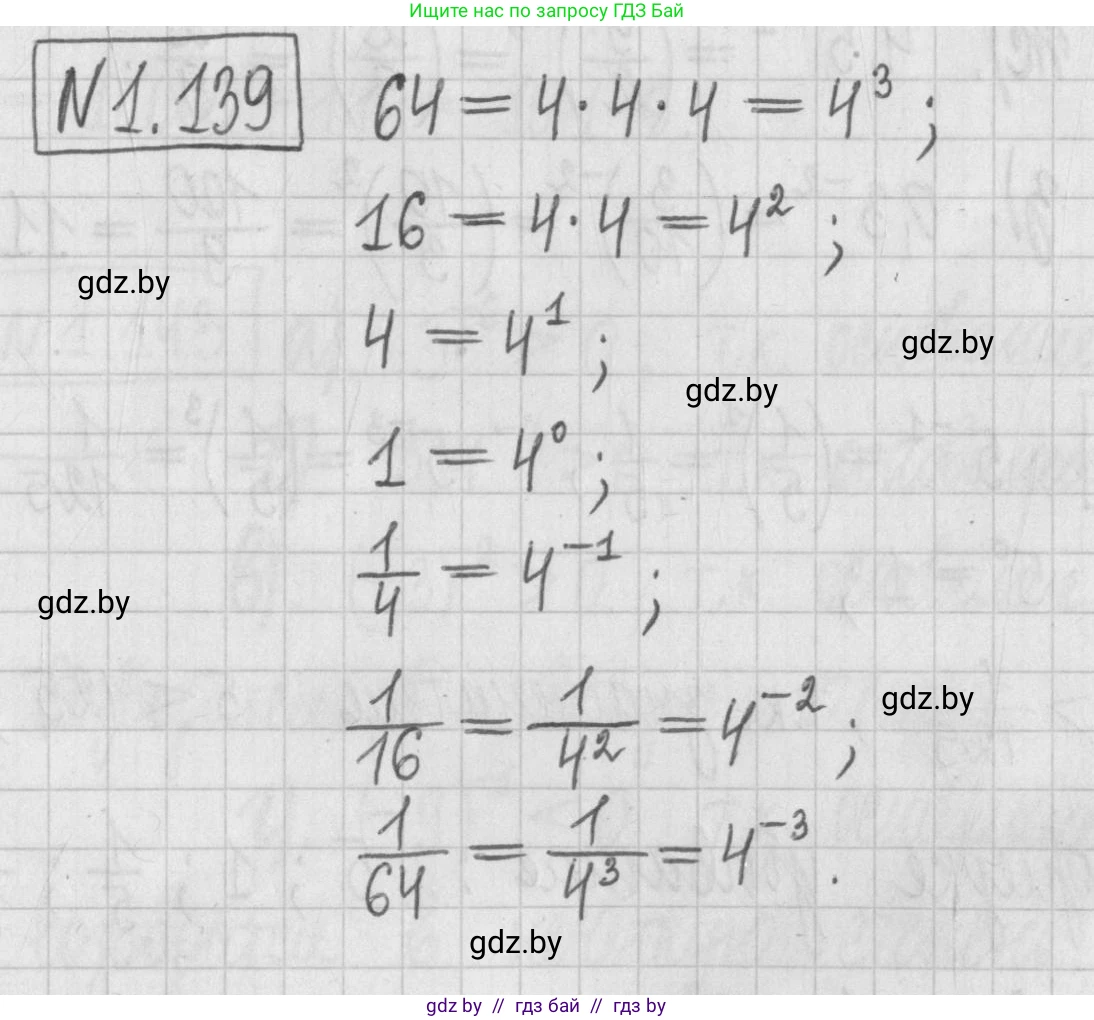 Ищите нас по запросу ГДЗ Бай
N 1.139
64 = 4·4·4 = 4³;
16 = 4·4 = 4²;
gdz.by
4 = 4¹;
gdz.by
gdz.by
1 = 4⁰;
1/4 = 4⁻¹;
gdz.by
1/16 = 1/4² = 4⁻²;
gdz.by
1/64 = 1/4³ = 4⁻³.
gdz.by
gdz by // гдз бай // гдз by